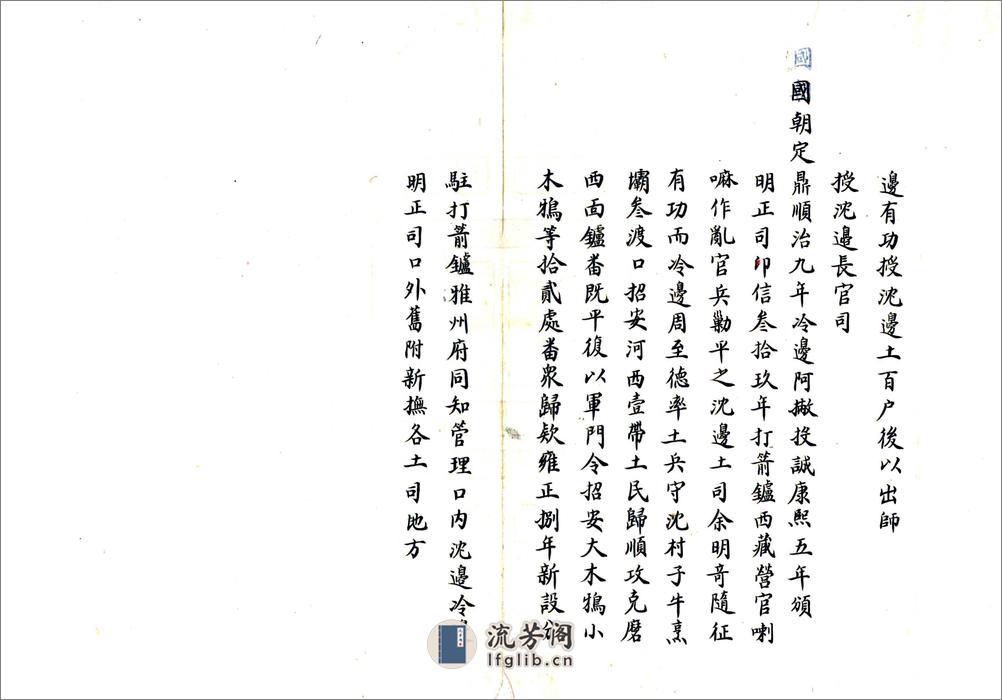 邊有功授沈邊土百户後以出師
授沈邊長官司
國
國朝定鼎順治九年冷邊阿撇投誠康熙五年頒
明正司印信叁拾玖年打箭鑪西藏營官喇
嘛作亂官兵勦平之沈邊土司余明竒隨征
有功而冷邊周至德率土兵守沈村子牛烹
壩叁渡口招安河西壹帶土民歸順攻克磨
西面鑪畨既平復以軍門令招安大木鴉小
木鴉等拾貳處畨衆歸欵雍正捌年新設分
駐打箭鑪雅州府同知管理口内沈邊冷
明正司口外舊附新撫各土司地方
流芳阁
lfglib.cn